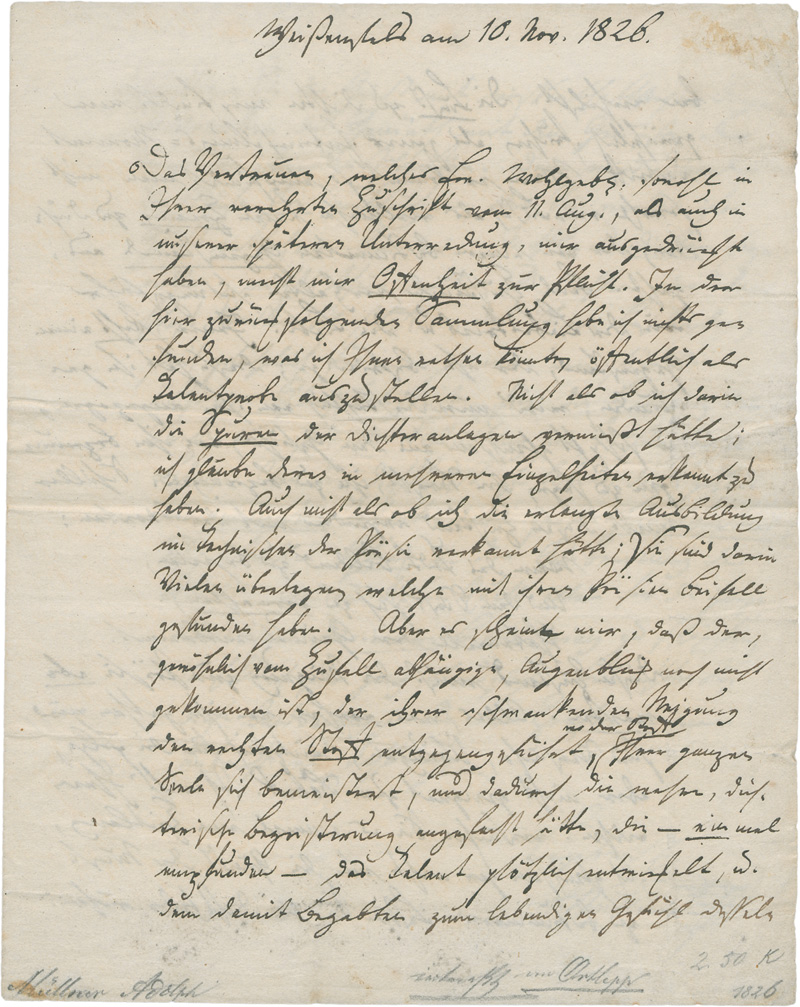 Weißenfels am 10. Nov. 1826.
Das Vertrauen, welches Ew. Wohlgeb. sowohl in
Ihrer verehrten Zuschrift vom 11. Aug., als auch in
unserer späteren Unterredung, mir ausgedrückt
haben, macht mir Offenheit zur Pflicht. In der
hier zurückfolgenden Sammlung habe ich nichts ge
funden, was ich Ihnen rathen könnte, öffentlich als
Talentprobe auszustellen. Nicht als ob ich darin
die Spuren der Dichteranlagen vermißt hätte;
ich glaube deren in mehreren Einzelheiten erkannt zu
haben. Auch nicht als ob ich die erlangte Ausbildung
im Technischen der Poesie verkannt hätte; Sie sind darin
Vielen überlegen welche mit ihren Poesien Beifall
gefunden haben. Aber es scheint mir, daß der,
gewöhnlich vom Zufall abhängige, Augenblick noch nicht
gekommen ist, der ihrer schwankenden Neigung
den rechten Stoff entgegengeführt, wo der Stoff Ihrer ganzen
Seele sich bemeistert, und dadurch die wahre, dich-
terische Begeisterung angefacht hätte, die — einmal
empfunden — das Talent plötzlich entwickelt, u.
dem damit Begabten zum lebendigen Gefühl desselb
Müllner Adolph
an Ortlepp
2.50 K
1826